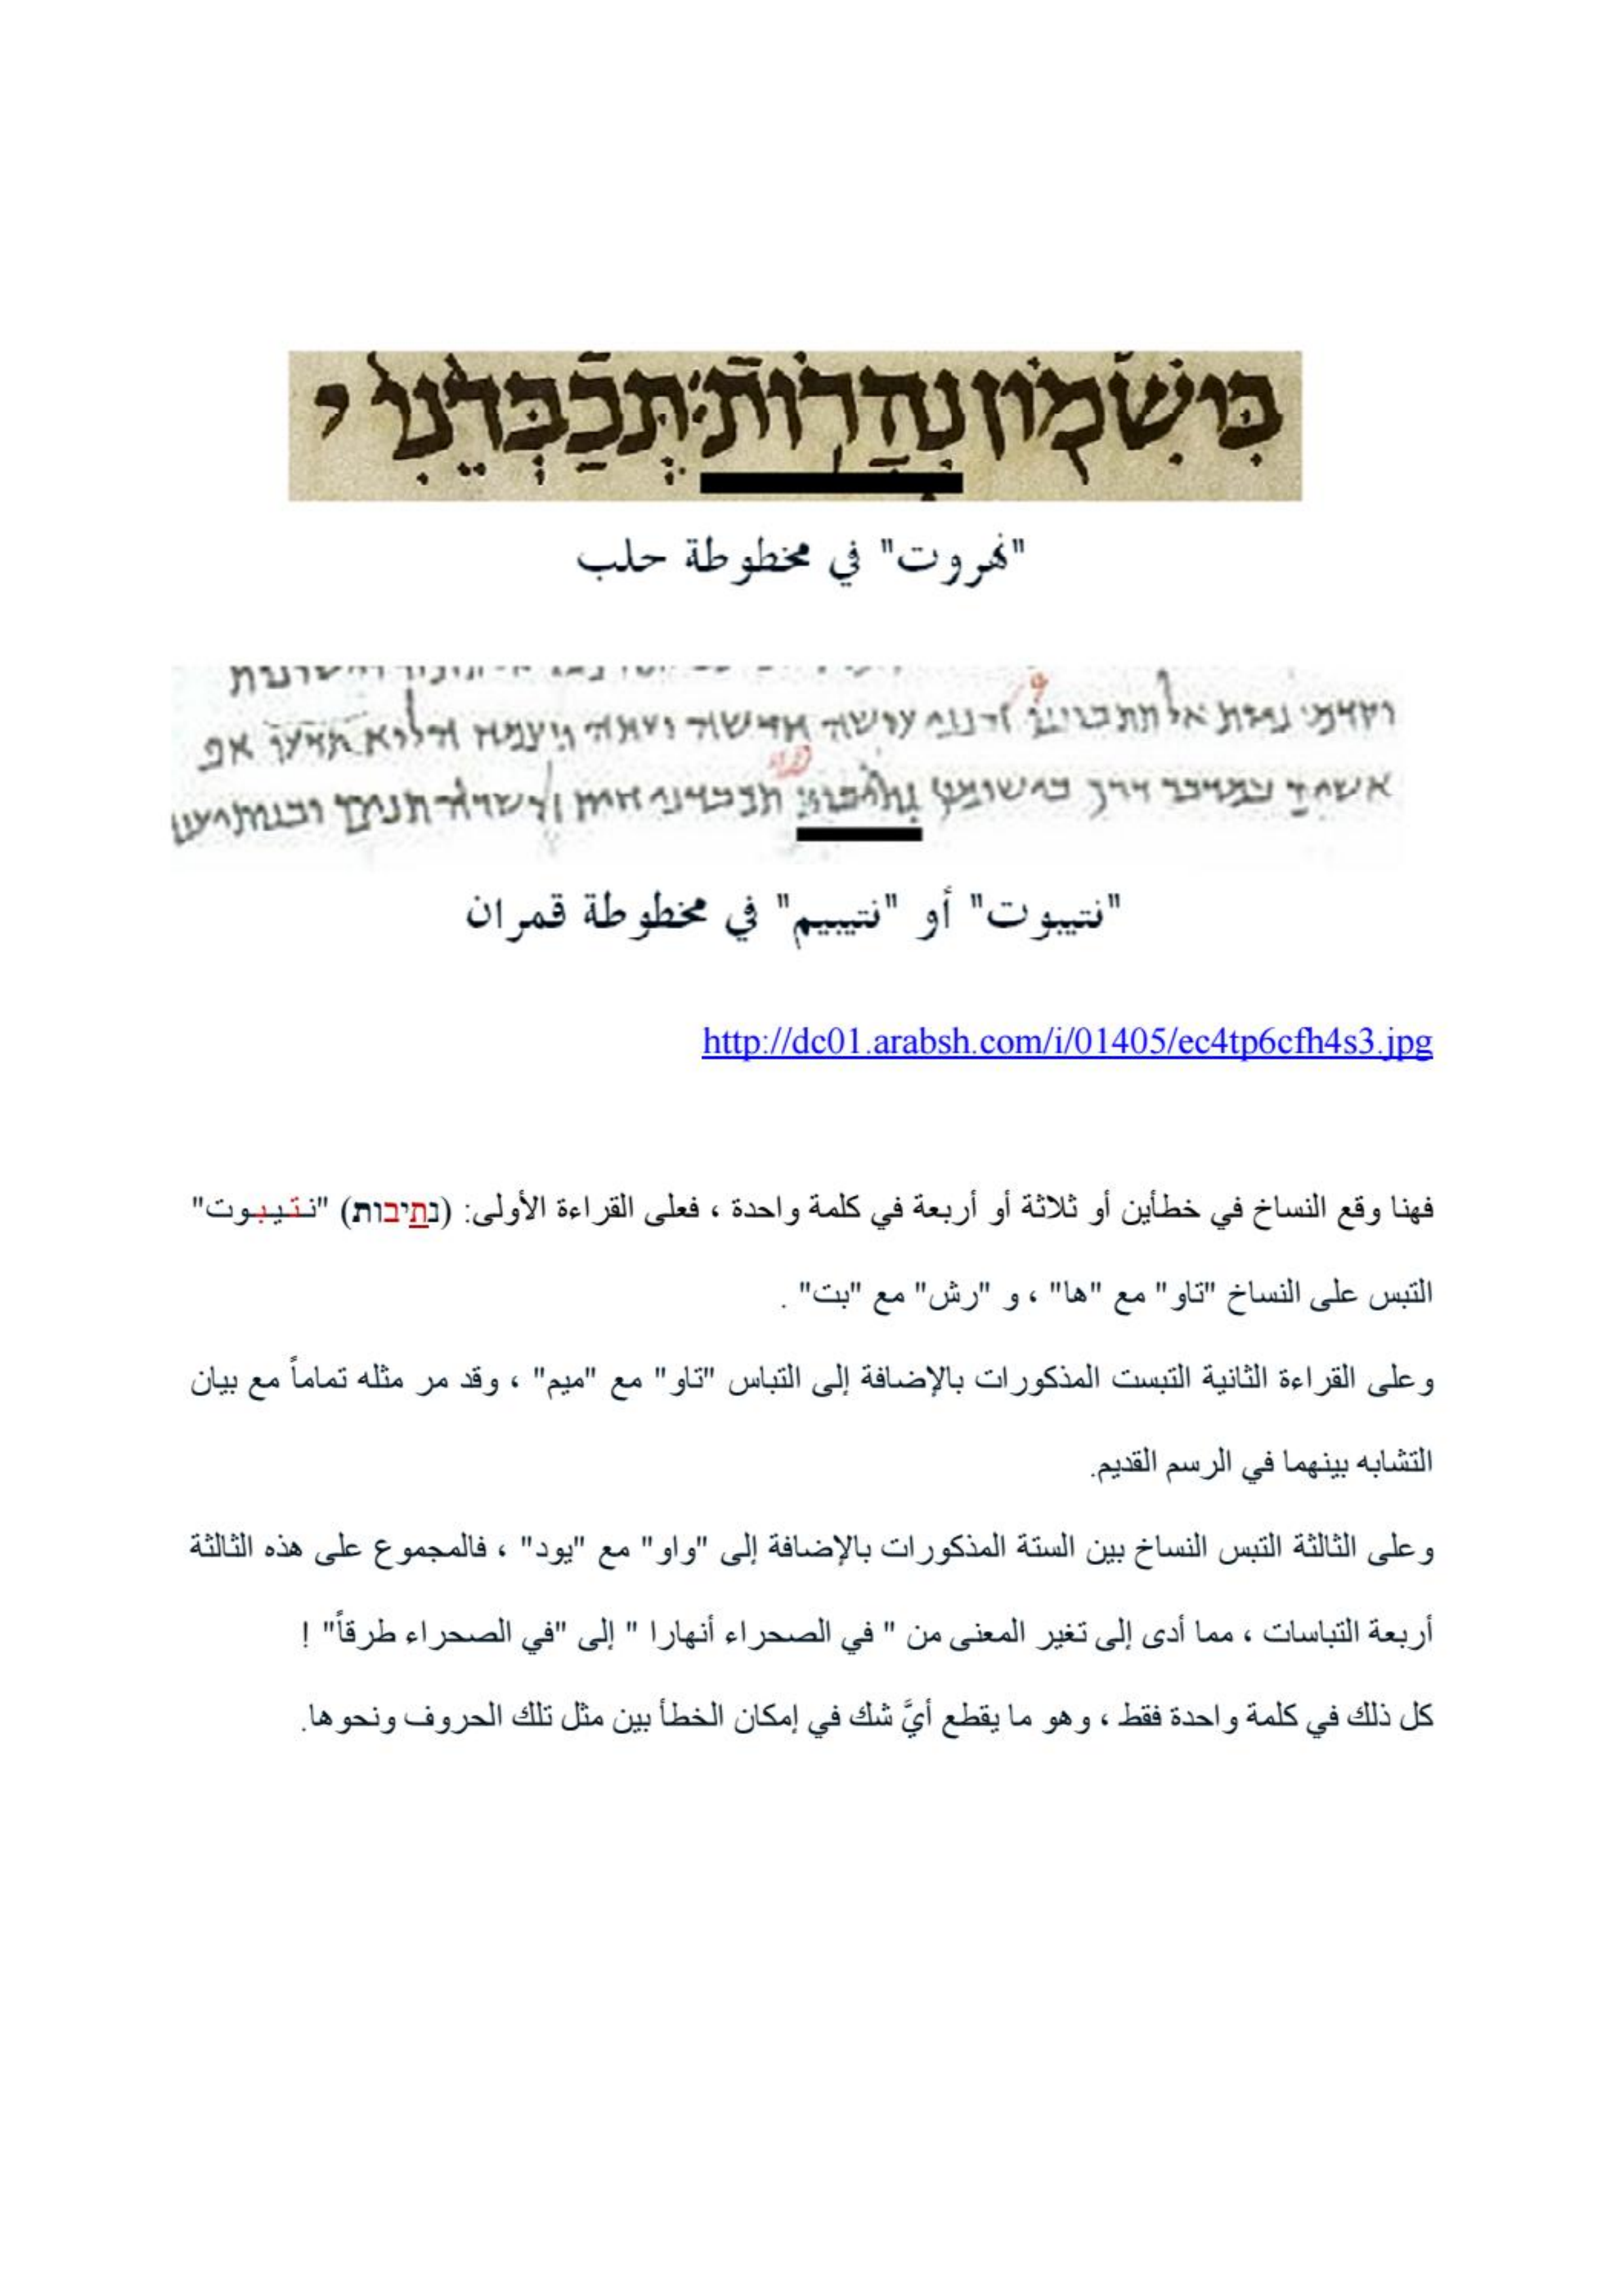 בִּישִׁמוֹן נְהָרוֹת׃ תְּכַבְּדֵנִי
"نهروت" في مخطوطة حلب
אל תתבוננו הנני עושה חדשה ועתה תצמח הלוא תדעו אפ
אשים במדבר דרך בישומון נתיבות תכבדני
"نتيبوت" أو "نتيبيم" في مخطوطة قمران
http://dc01.arabsh.com/i/01405/ec4tp6cfh4s3.jpg
فهنا وقع النساخ في خطأين أو ثلاثة أو أربعة في كلمة واحدة ، فعلى القراءة الأولى: (נתיבות) "نـتـيـبـوت"
التبس على النساخ "تاو" مع "ها" ، و "رش" مع "بت" .
وعلى القراءة الثانية التبست المذكورات بالإضافة إلى التباس "تاو" مع "ميم" ، وقد مر مثله تماماً مع بيان
التشابه بينهما في الرسم القديم.
وعلى الثالثة التبس النساخ بين الستة المذكورات بالإضافة إلى "واو" مع "يود" ، فالمجموع على هذه الثالثة
أربعة التباسات ، مما أدى إلى تغير المعنى من " في الصحراء أنهارا " إلى "في الصحراء طرقاً" !
كل ذلك في كلمة واحدة فقط ، وهو ما يقطع أيَّ شك في إمكان الخطأ بين مثل تلك الحروف ونحوها.